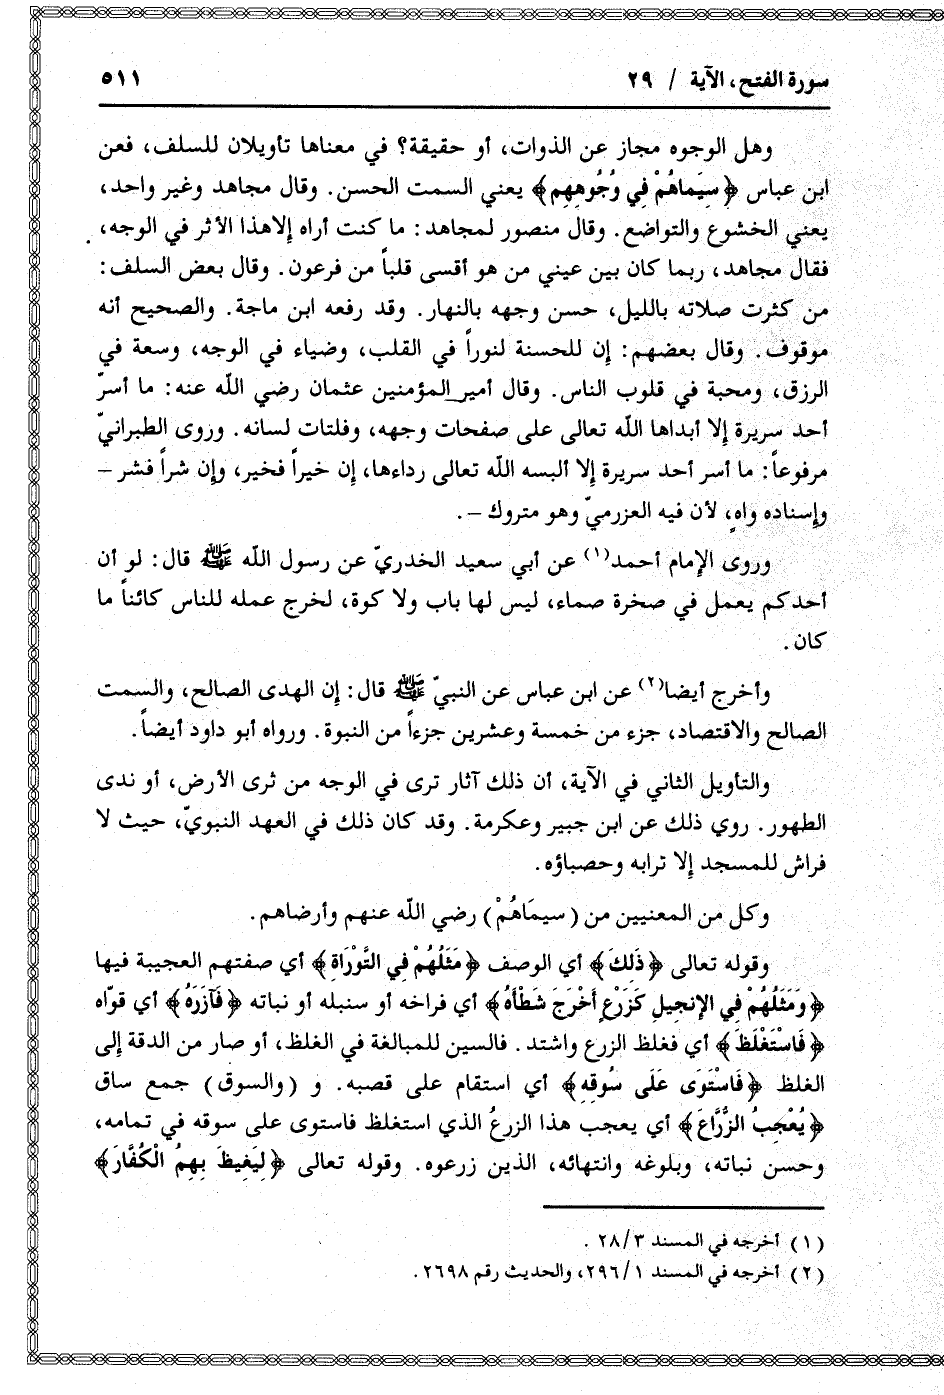 سورة الفتح، الآية / ٢٩
٥١١
وهل الوجوه مجاز عن الذوات، أو حقيقة؟ في معناها تأويلان للسلف، فعن
ابن عباس ﴿سِيَماهُمْ فِي وُجُوهِهِم﴾ يعني السمت الحسن. وقال مجاهد وغير واحد،
يعني الخشوع والتواضع. وقال منصور لمجاهد: ما كنت أراه إلا هذا الأثر في الوجه،
فقال مجاهد، ربما كان بين عيني من هو أقسى قلباً من فرعون. وقال بعض السلف:
من كثرت صلاته بالليل، حسن وجهه بالنهار. وقد رفعه ابن ماجة. والصحيح أنه
موقوف. وقال بعضهم: إن للحسنة لنوراً في القلب، وضياء في الوجه، وسعة في
الرزق، ومحبة في قلوب الناس. وقال أمير المؤمنين عثمان رضي اللّه عنه: ما أسرّ
أحد سريرة إلا أبداها اللّه تعالى على صفحات وجهه، وفلتات لسانه. وروى الطبرانيّ
مرفوعاً: ما أسر أحد سريرة إلا ألبسه اللّه تعالى رداءها، إن خيراً فخير، وإن شراً فشر –
وإسناده واهٍ، لأن فيه العزرميّ وهو متروك –.
وروى الإمام أحمد(١) عن أبي سعيد الخدريّ عن رسول اللّه ﷺ قال: لو أن
أحدكم يعمل في صخرة صماء، ليس لها باب ولا كوة، لخرج عمله للناس كائناً ما
كان.
وأخرج أيضا(٢) عن ابن عباس عن النبيّ ﷺ قال: إن الهدى الصالح، والسمت
الصالح والاقتصاد، جزء من خمسة وعشرين جزءاً من النبوة. ورواه أبو داود أيضاً.
والتأويل الثاني في الآية، أن ذلك آثار ترى في الوجه من ثرى الأرض، أو ندى
الطهور. روي ذلك عن ابن جبير وعكرمة. وقد كان ذلك في العهد النبويّ، حيث لا
فراش للمسجد إلا ترابه وحصباؤه.
وكل من المعنيين من (سيمَاهُمْ) رضي اللّه عنهم وأرضاهم.
وقوله تعالى ﴿ذَلِكَ﴾ أي الوصف ﴿مَثَلُهُمْ فِي التَّوْرَاةِ﴾ أي صفتهم العجيبة فيها
﴿وَمَثَلُهُمْ فِي الإنجيلِ كَزَرْعٍ أَخْرَجَ شَطْأَهُ﴾ أي فراخه أو سنبله أو نباته ﴿فَآزَرَهُ﴾ أي قوّاه
﴿فَاسْتَغْلَظَ﴾ أي فغلظ الزرع واشتد. فالسين للمبالغة في الغلظ، أو صار من الدقة إلى
الغلظ ﴿فَاسْتَوَى عَلَى سُوقِهِ﴾ أي استقام على قصبه. و (والسوق) جمع ساق
﴿يُعْجِبُ الزُّرَّاعَ﴾ أي يعجب هذا الزرعُ الذي استغلظ فاستوى على سوقه في تمامه،
وحسن نباته، وبلوغه وانتهائه، الذين زرعوه. وقوله تعالى ﴿لِيَغِيظَ بِهِمُ الْكُفَّارَ﴾
(١) أخرجه في المسند ٢٨/٣ .
(٢) أخرجه في المسند ٢٩٦/١، والحديث رقم ٢٦٩٨.